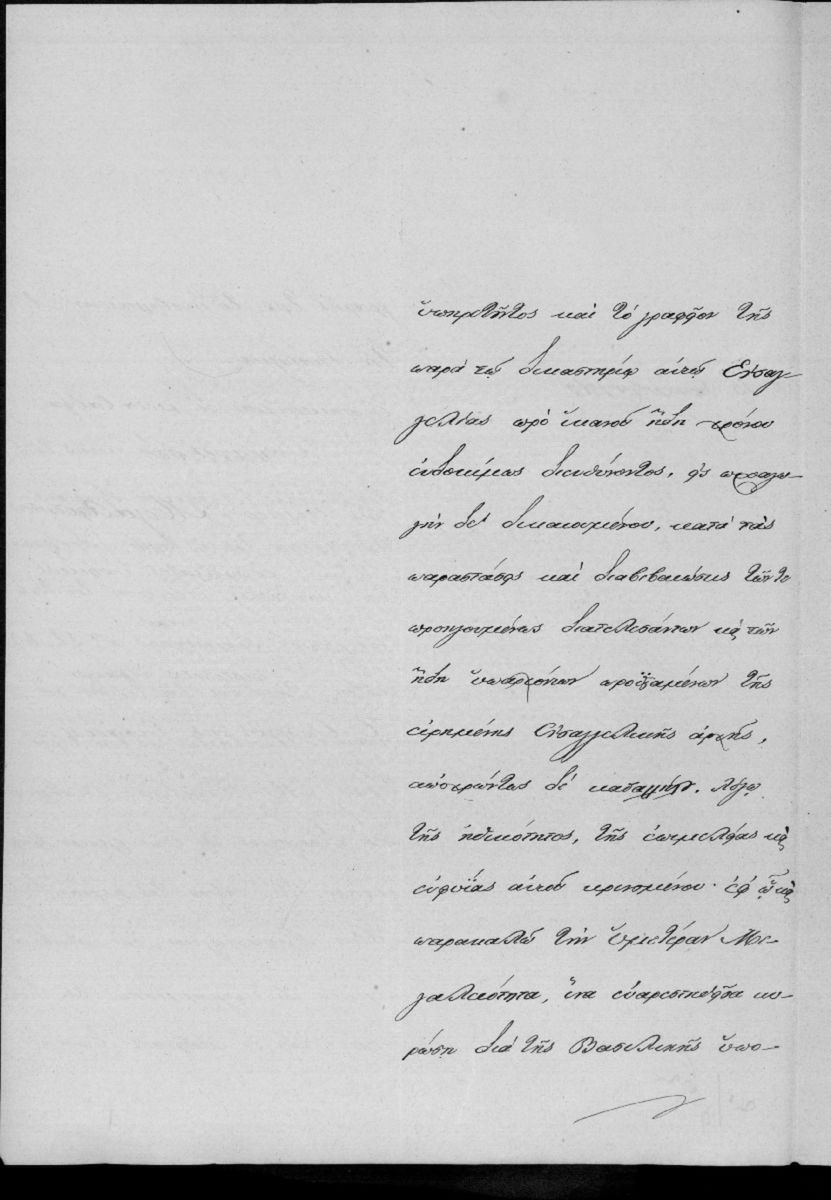 ὑπηρετοῦντος καὶ τὸ γραφεῖον τῆς
παρὰ τῷ δικαστηρίῳ αὐτῷ Εἰσαγ-
γελίας πρὸ ἱκανοῦ ἤδη χρόνου
εὐδοκίμως διευθύνοντος, ὡς προαγω-
γὴν δὲ δικαιουμένου, κατὰ τὰς
παραστάσεις καὶ διαβεβαιώσεις τῶν τε
προηγουμένως διατελεσάντων κ τῶν
ἤδη ὑπαρχόντων προϊσταμένων τῆς
εἰρημένης Εἰσαγγελικῆς ἀρχῆς,
ἀποχρώντως δὲ λόγῳ
τῆς ἠθικότητος, τῆς ἐπιμελείας κ
εὐφυΐας αὐτοῦ κρινομένου· ἐφ' ᾧ κ
παρακαλῶ τὴν Ὑμετέραν Με-
γαλειότητα, ἵνα εὐαρεστηθεῖσα κυ-
ρώσῃ διὰ τῆς Βασιλικῆς ὑπο-